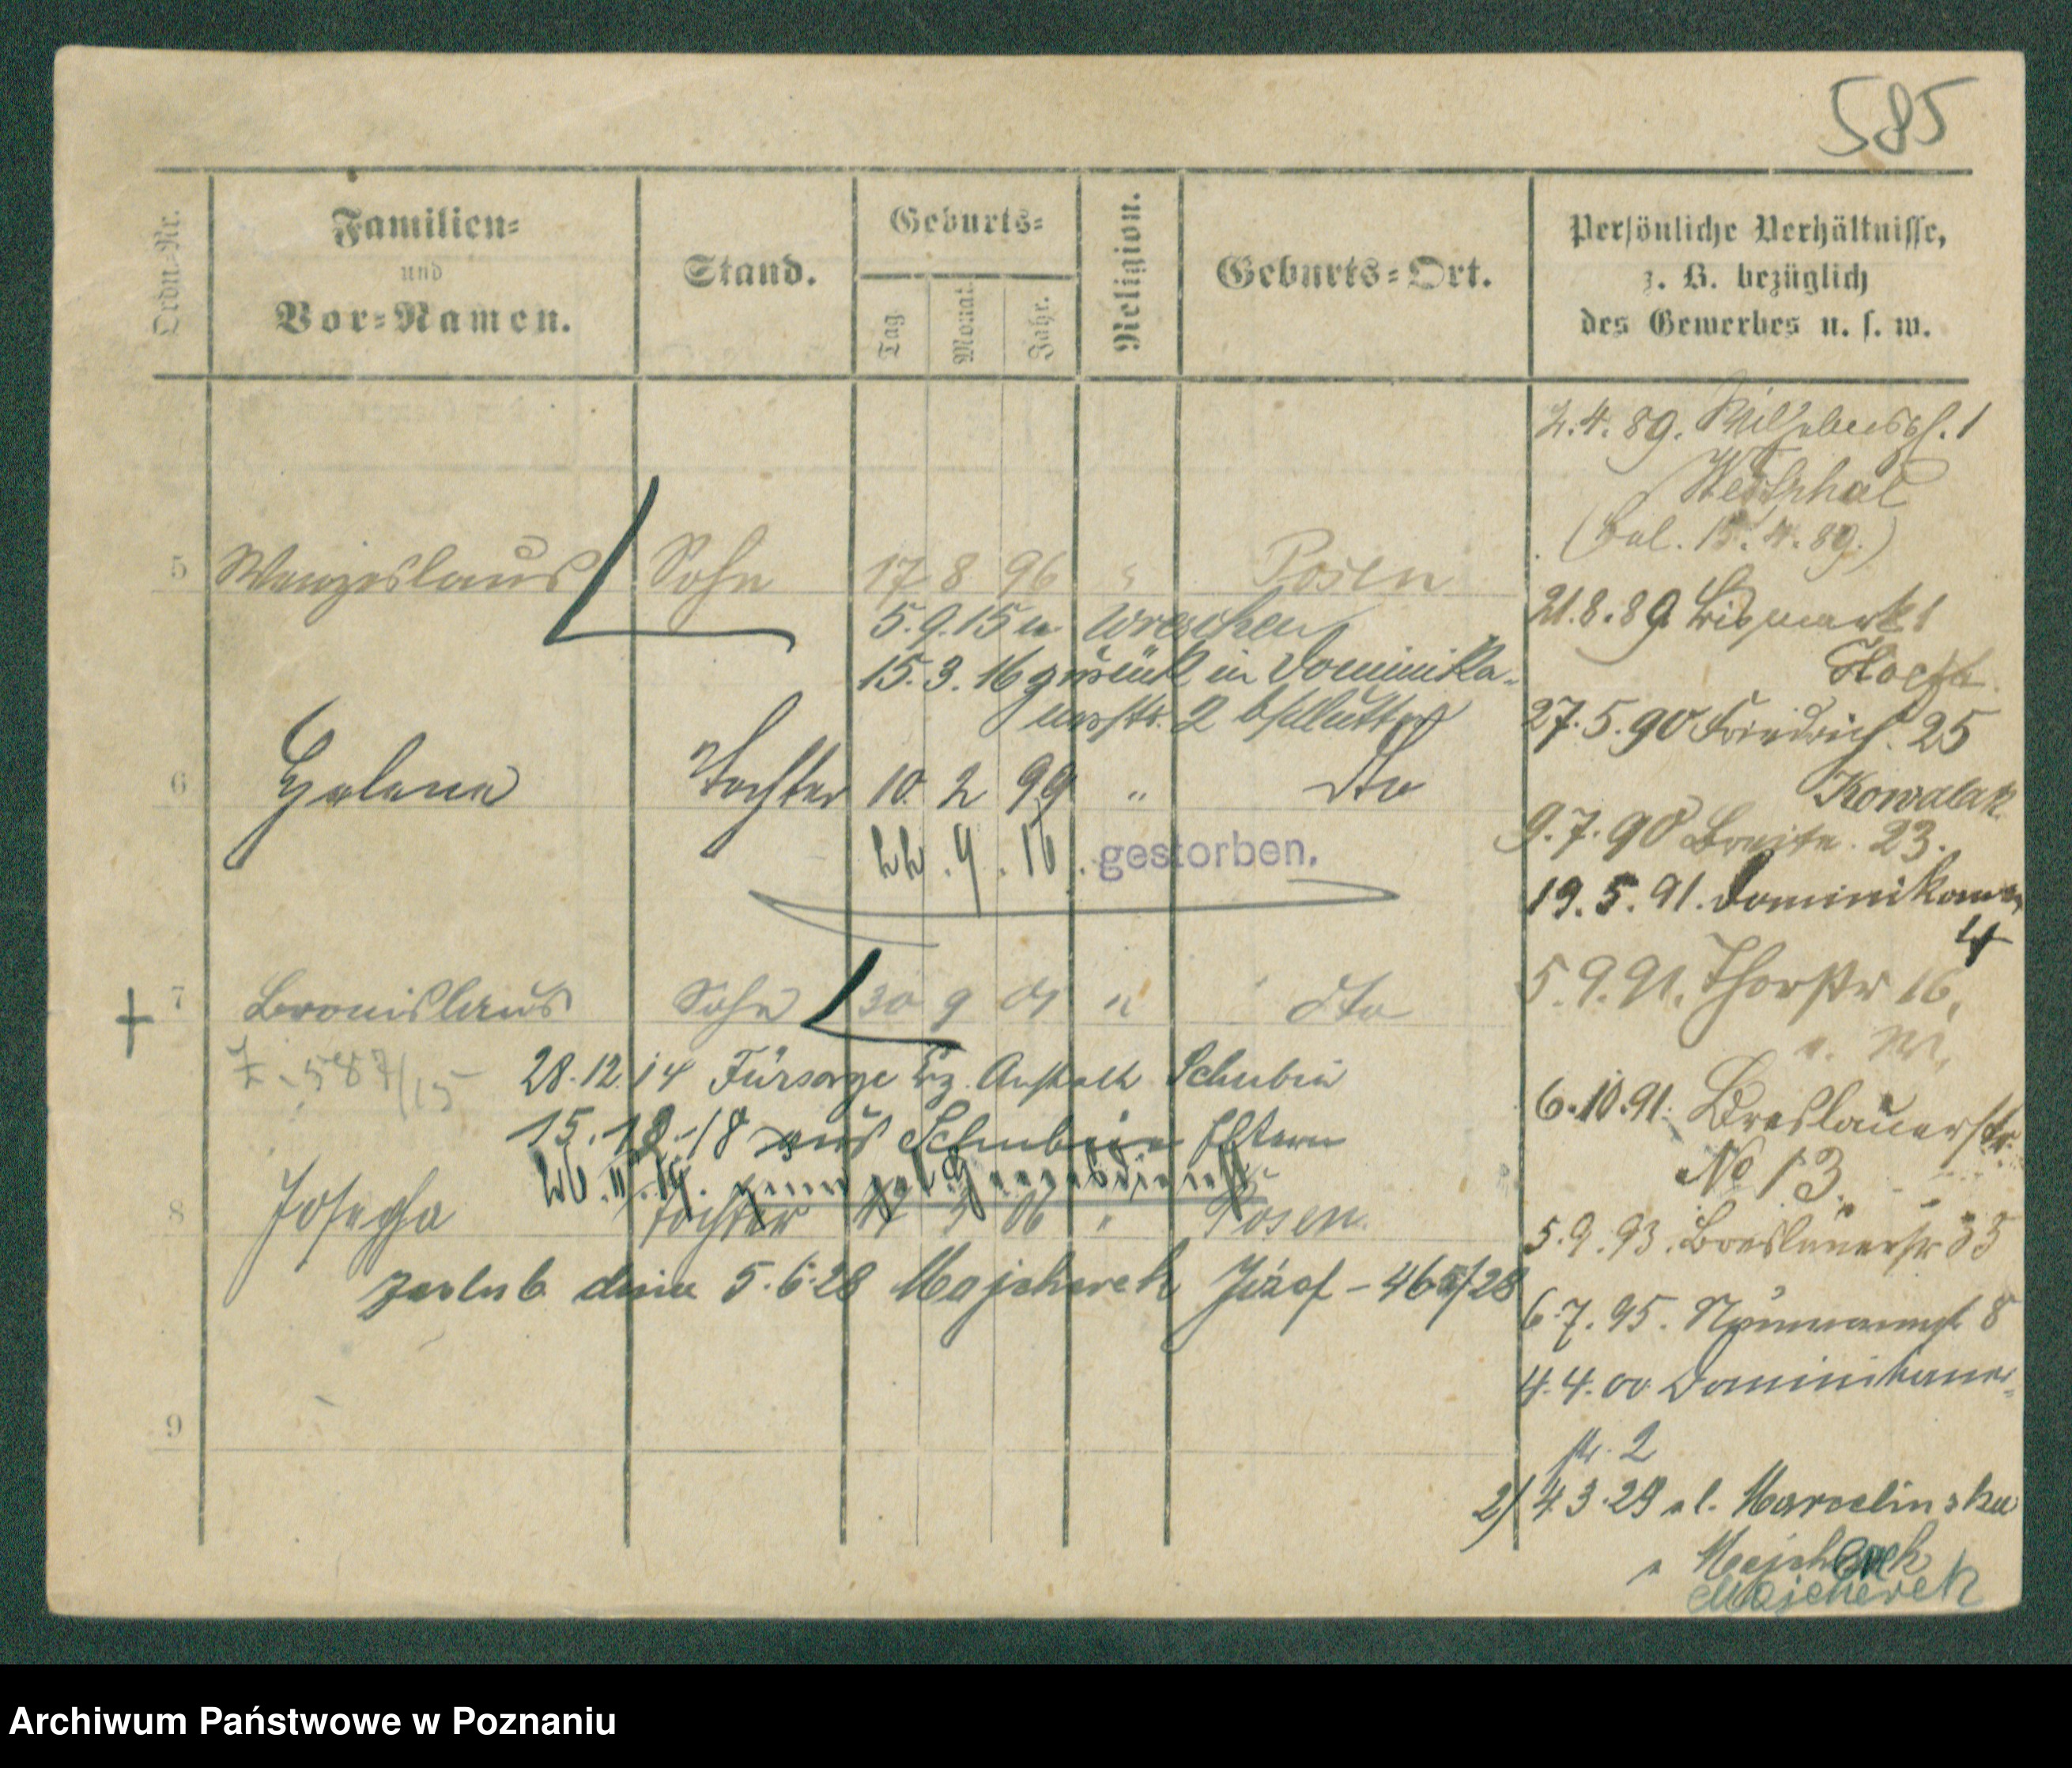 585
Ordn.-Nr.
Familien-
und
Vor-Namen.
Stand.
Geburts-
Tag.
Monat.
Jahr.
Religion.
Geburts-Ort.
Persönliche Verhältnisse,
z. B. bezüglich
des Gewerbes u. s. w.
5 Wenzeslaus Sohn 17 8 96 " Posen
5.9.15 n Wreschen
15.3.16 zurück in Dominika-
nerstr. 2
6 Helena Tochter 10. 2 99 " dto
22.9.16. gestorben.
+ 7 Bronislaus Sohn 30 9 01 " dto
Z. 587/15
28.12.14 Fürsorge Erz. Anstalt Schubin
15.12.18 aus Schubin Eltern
8 Josepha Tochter 06 " Posen.
zaślub. dnia 5.6.28 Majcherek Józef - 465/28
9
2.4.89. Wilhelmspl. 1
Westphal
(Bal. 15.4.89.)
21.8.89 Bismarkt 1
27.5.90 Friedrich. 25
Kowalak
9.7.90 Breite. 23.
19.5.91. Dominikaner
4
5.9.91. Thorstr 16,
6.10.91. Breslauerstr.
No 13.
5.9.93. Breslauerstr 33
6.7.95. 8
4.4.00 Dominikaner-
str. 2
2/ 4 3.29 ul. Marcelinska
Majcherek
Majcherek
Archiwum Państwowe w Poznaniu